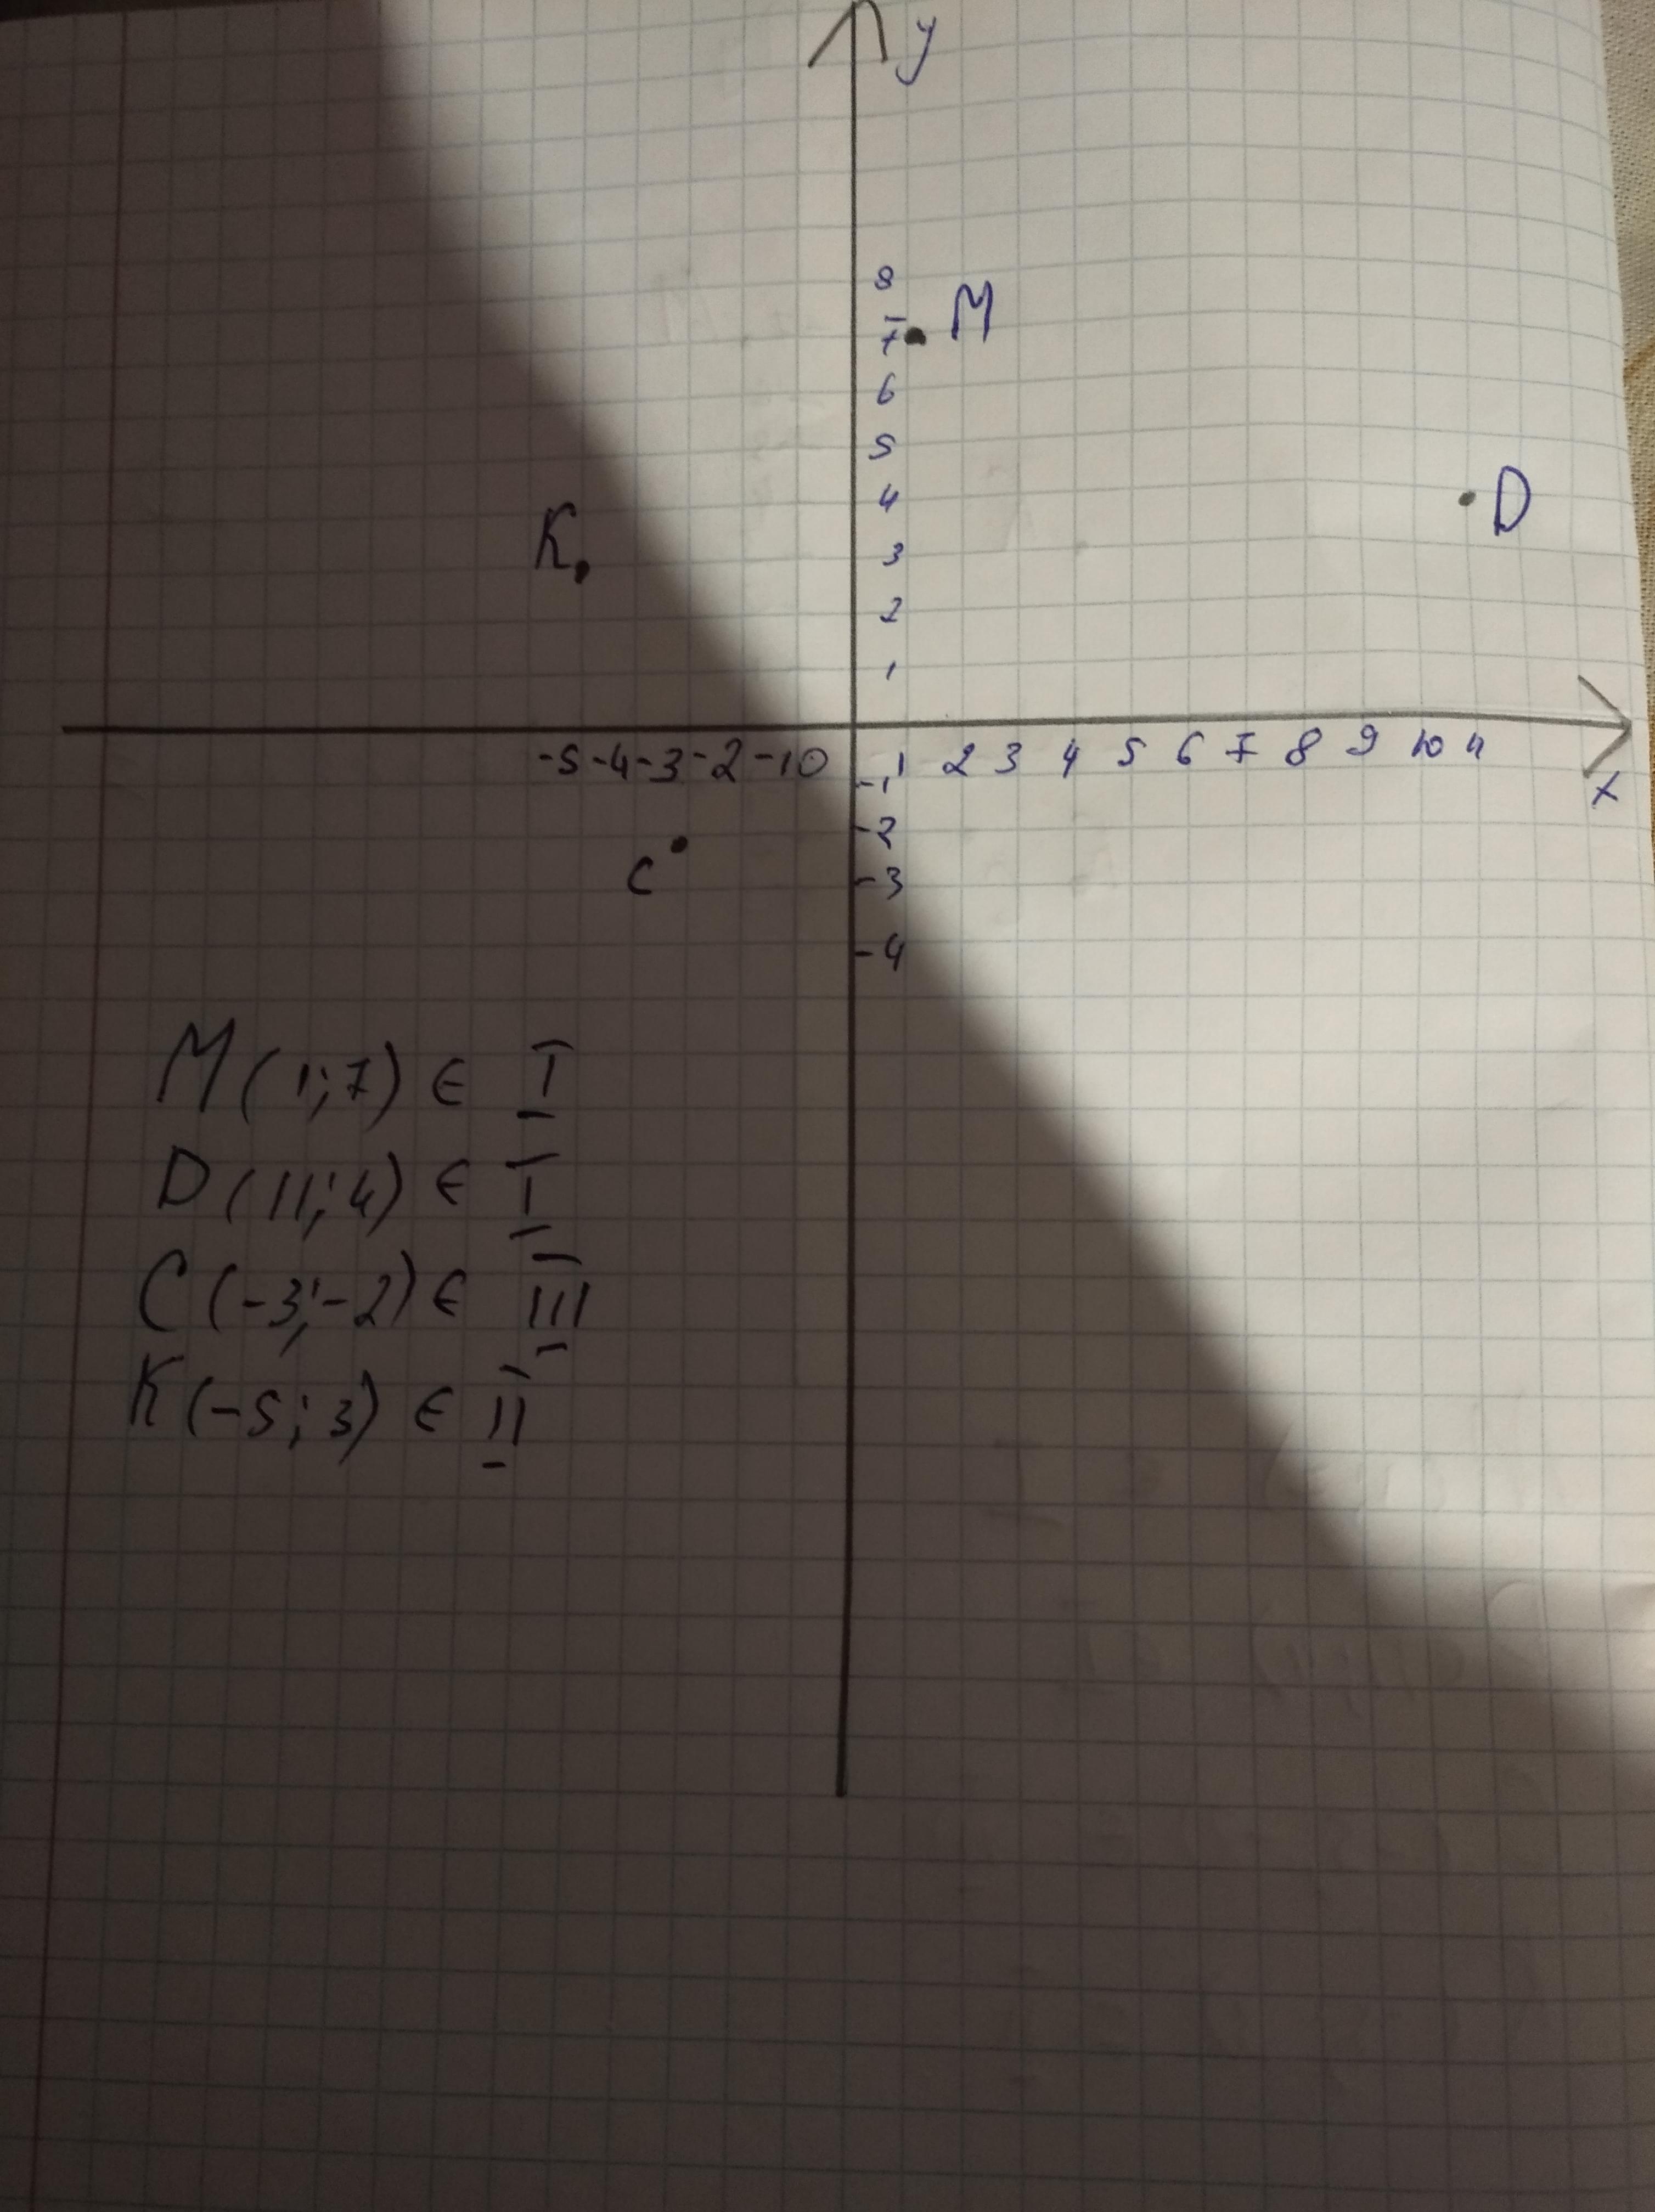 y
8
7
M
6
5
4
D
K
3
2
1
-5 -4 -3 -2 -1 0 1 2 3 4 5 6 7 8 9 10 11
x
-1
-2
C
-3
-4
M (1;7) ∈ I
D (11;4) ∈ I
C (-3;-2) ∈ III
K (-5;3) ∈ II